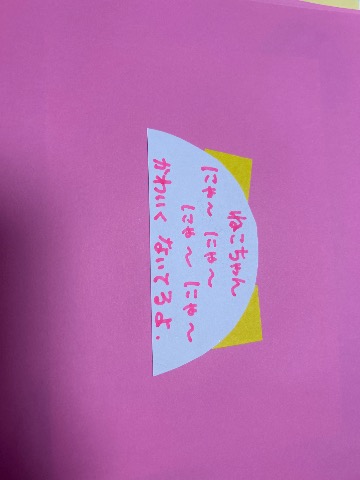 ねこちゃん
にゃ〜 にゃ〜
にゃ〜 にゃ〜
かわいく ないてるよ.